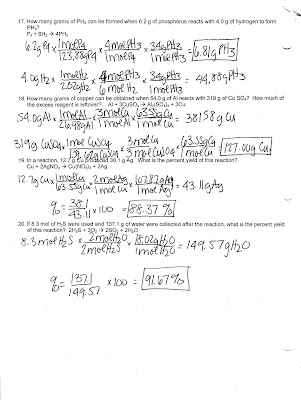 17. How many grams of PH₃ can be formed when 6.2 g of phosphorus reacts with 4.0 g of hydrogen to form
PH₃?
P₄ + 6H₂ → 4PH₃
6.2g P₄ × 1mol P₄/123.88g P₄ × 4mol PH₃/1mol P₄ × 34g PH₃/1mol PH₃ = 6.81g PH₃
4.0g H₂ × 1mol H₂/2.02g H₂ × 4mol PH₃/6mol H₂ × 34g PH₃/1mol PH₃ = 44.88g PH₃
18. How many grams of copper can be obtained when 54.0 g of Al reacts with 319 g of Cu SO₄? How much of
the excess reagent is leftover? Al + 3CuSO₄ → Al₂(SO₄)₃ + 3Cu
54.0g Al × 1mol Al/26.98g Al × 3mol Cu/1mol Al × 63.55g Cu/1mol Cu = 381.58g Cu
319g CuSO₄ × 1mol CuSO₄/ CuSO₄ × 3mol Cu/3mol CuSO₄ × 63.55g Cu/1mol Cu = 127.00g Cu
19. In a reaction, 12.7 g Cu produced 38.1 g Ag. What is the percent yield of this reaction?
Cu + 2AgNO₃ → Cu(NO₃)₂ + 2Ag
12.7g Cu × 1mol Cu/63.55g Cu × 2mol Ag/1mol Cu × 107.87g Ag/1mol Ag = 43.11g Ag
% = 38.1/43.11 × 100 = 88.37%
20. If 8.3 mol of H₂S were used and 137.1 g of water were collected after the reaction, what is the percent yield
of this reaction? 2H₂S + 3O₂ → 2SO₂ + 2H₂O
8.3mol H₂S × 2mol H₂O/2mol H₂S × 18.02g H₂O/1mol H₂O = 149.57g H₂O
% = 137.1/149.57 × 100 = 91.67%